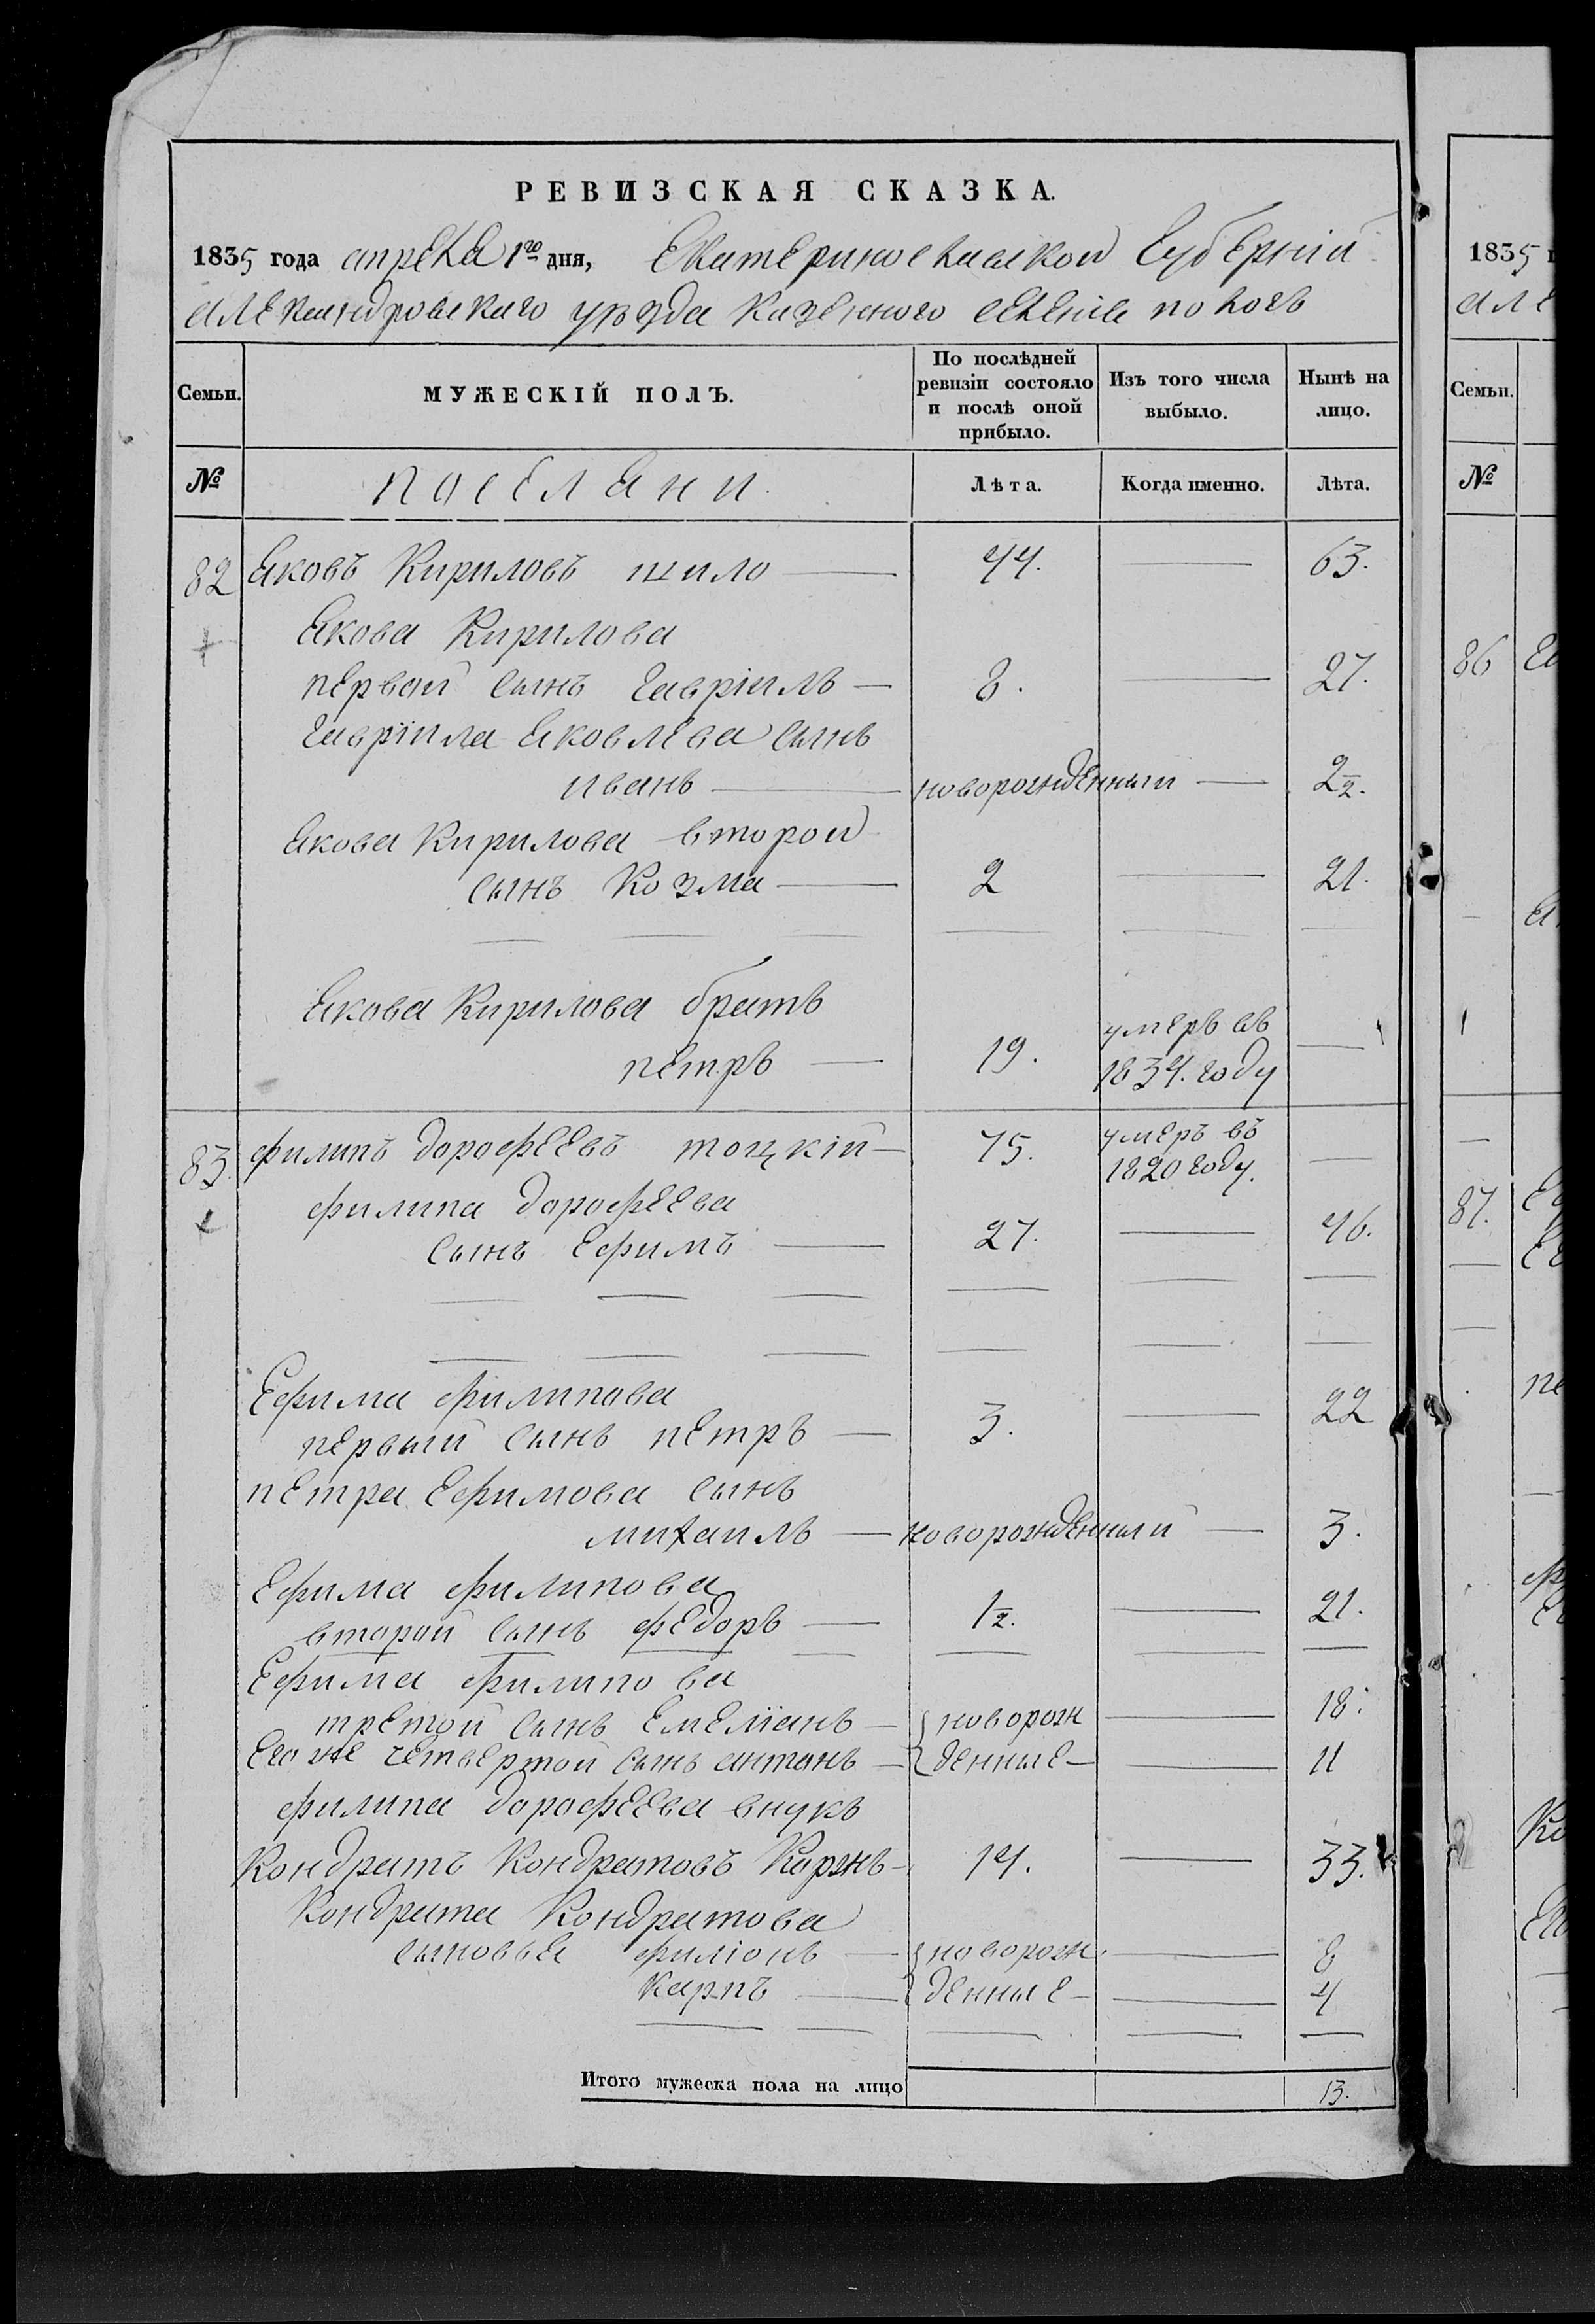 РЕВИЗСКАЯ СКАЗКА.
1835 года апреля 1го дня, Екатеринославской Губернии
Александровскаго уезда казенного селения пологъ
Семьи. МУЖЕСКІЙ ПОЛЪ. По послѣдней ревизіи состояло и послѣ оной прибыло. Изъ того числа выбыло. Нынѣ на лицо.
№ поселяни Лѣта. Когда именно. Лѣта.
82 Яковъ Кириловъ шило 44. 63.
Якова Кирилова
первой сынъ Гавріилъ 8. 27.
Гавріила Яковлева сынъ
иванъ новорожденный 2 1/2.
Якова Кирилова второй
сынъ Козма 2 21.
Якова Кирилова братъ
петръ 19. умеръ въ 1834. году
83. филипъ дорофеевъ тоцкій 75. умеръ въ 1820 году.
филипа дорофеева
сынъ Ефимъ 27. 46.
Ефима филипова
первый сынъ петръ 3. 22
петра Ефимова сынъ
михаилъ новорожденный 3.
Ефима филипова
второй сынъ федоръ 1/2. 21.
Ефима филипова
третой сынъ Емеліанъ новорож 18.
Его же четвертой сынъ антонъ денные 11
филипа дорофеева внукъ
Кондратъ Кондратовъ Коржъ 14. 33.
Кондрата Кондратова
сыновья филіонъ новорож 8
Карпъ денные 4
Итого мужеска пола на лицо 13.
1835
але
Семьи.
№
86
87.